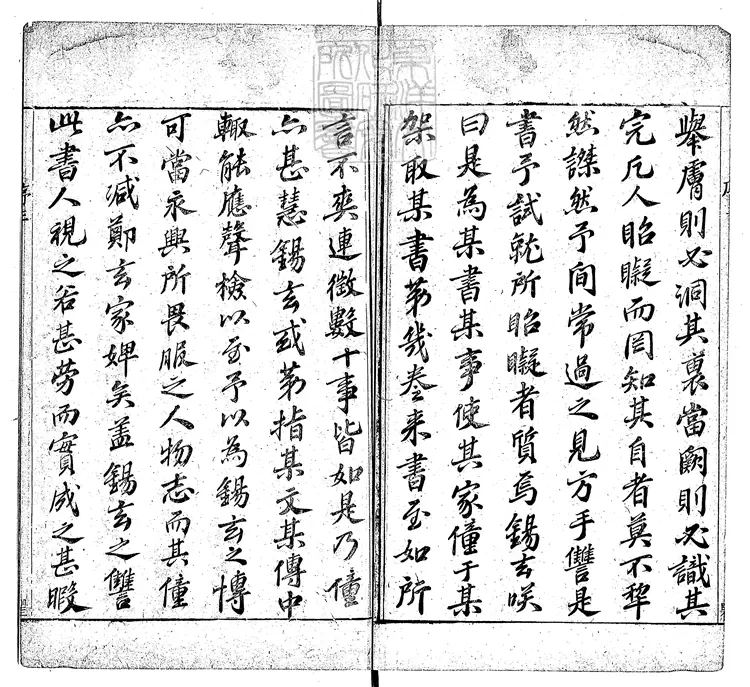 舉膚則必洞其裏當闕則必識其
完凡人眙矃而罔知其自者莫不犂
然謋然予間常過之見方手讐是
書予試就所眙矃者質焉錫玄咲
曰是為某書某事使其家僮于某
架取某書第幾卷来書至如所
言不爽連徵數十事皆如是乃僮
亦甚慧錫玄或第指某文某傳中
輙能應聲檢以至予以為錫玄之博
可當永興所畏服之人物志而其僮
亦不減鄭玄家婢矣盖錫玄之讐
此書人視之若甚勞而實成之甚暇